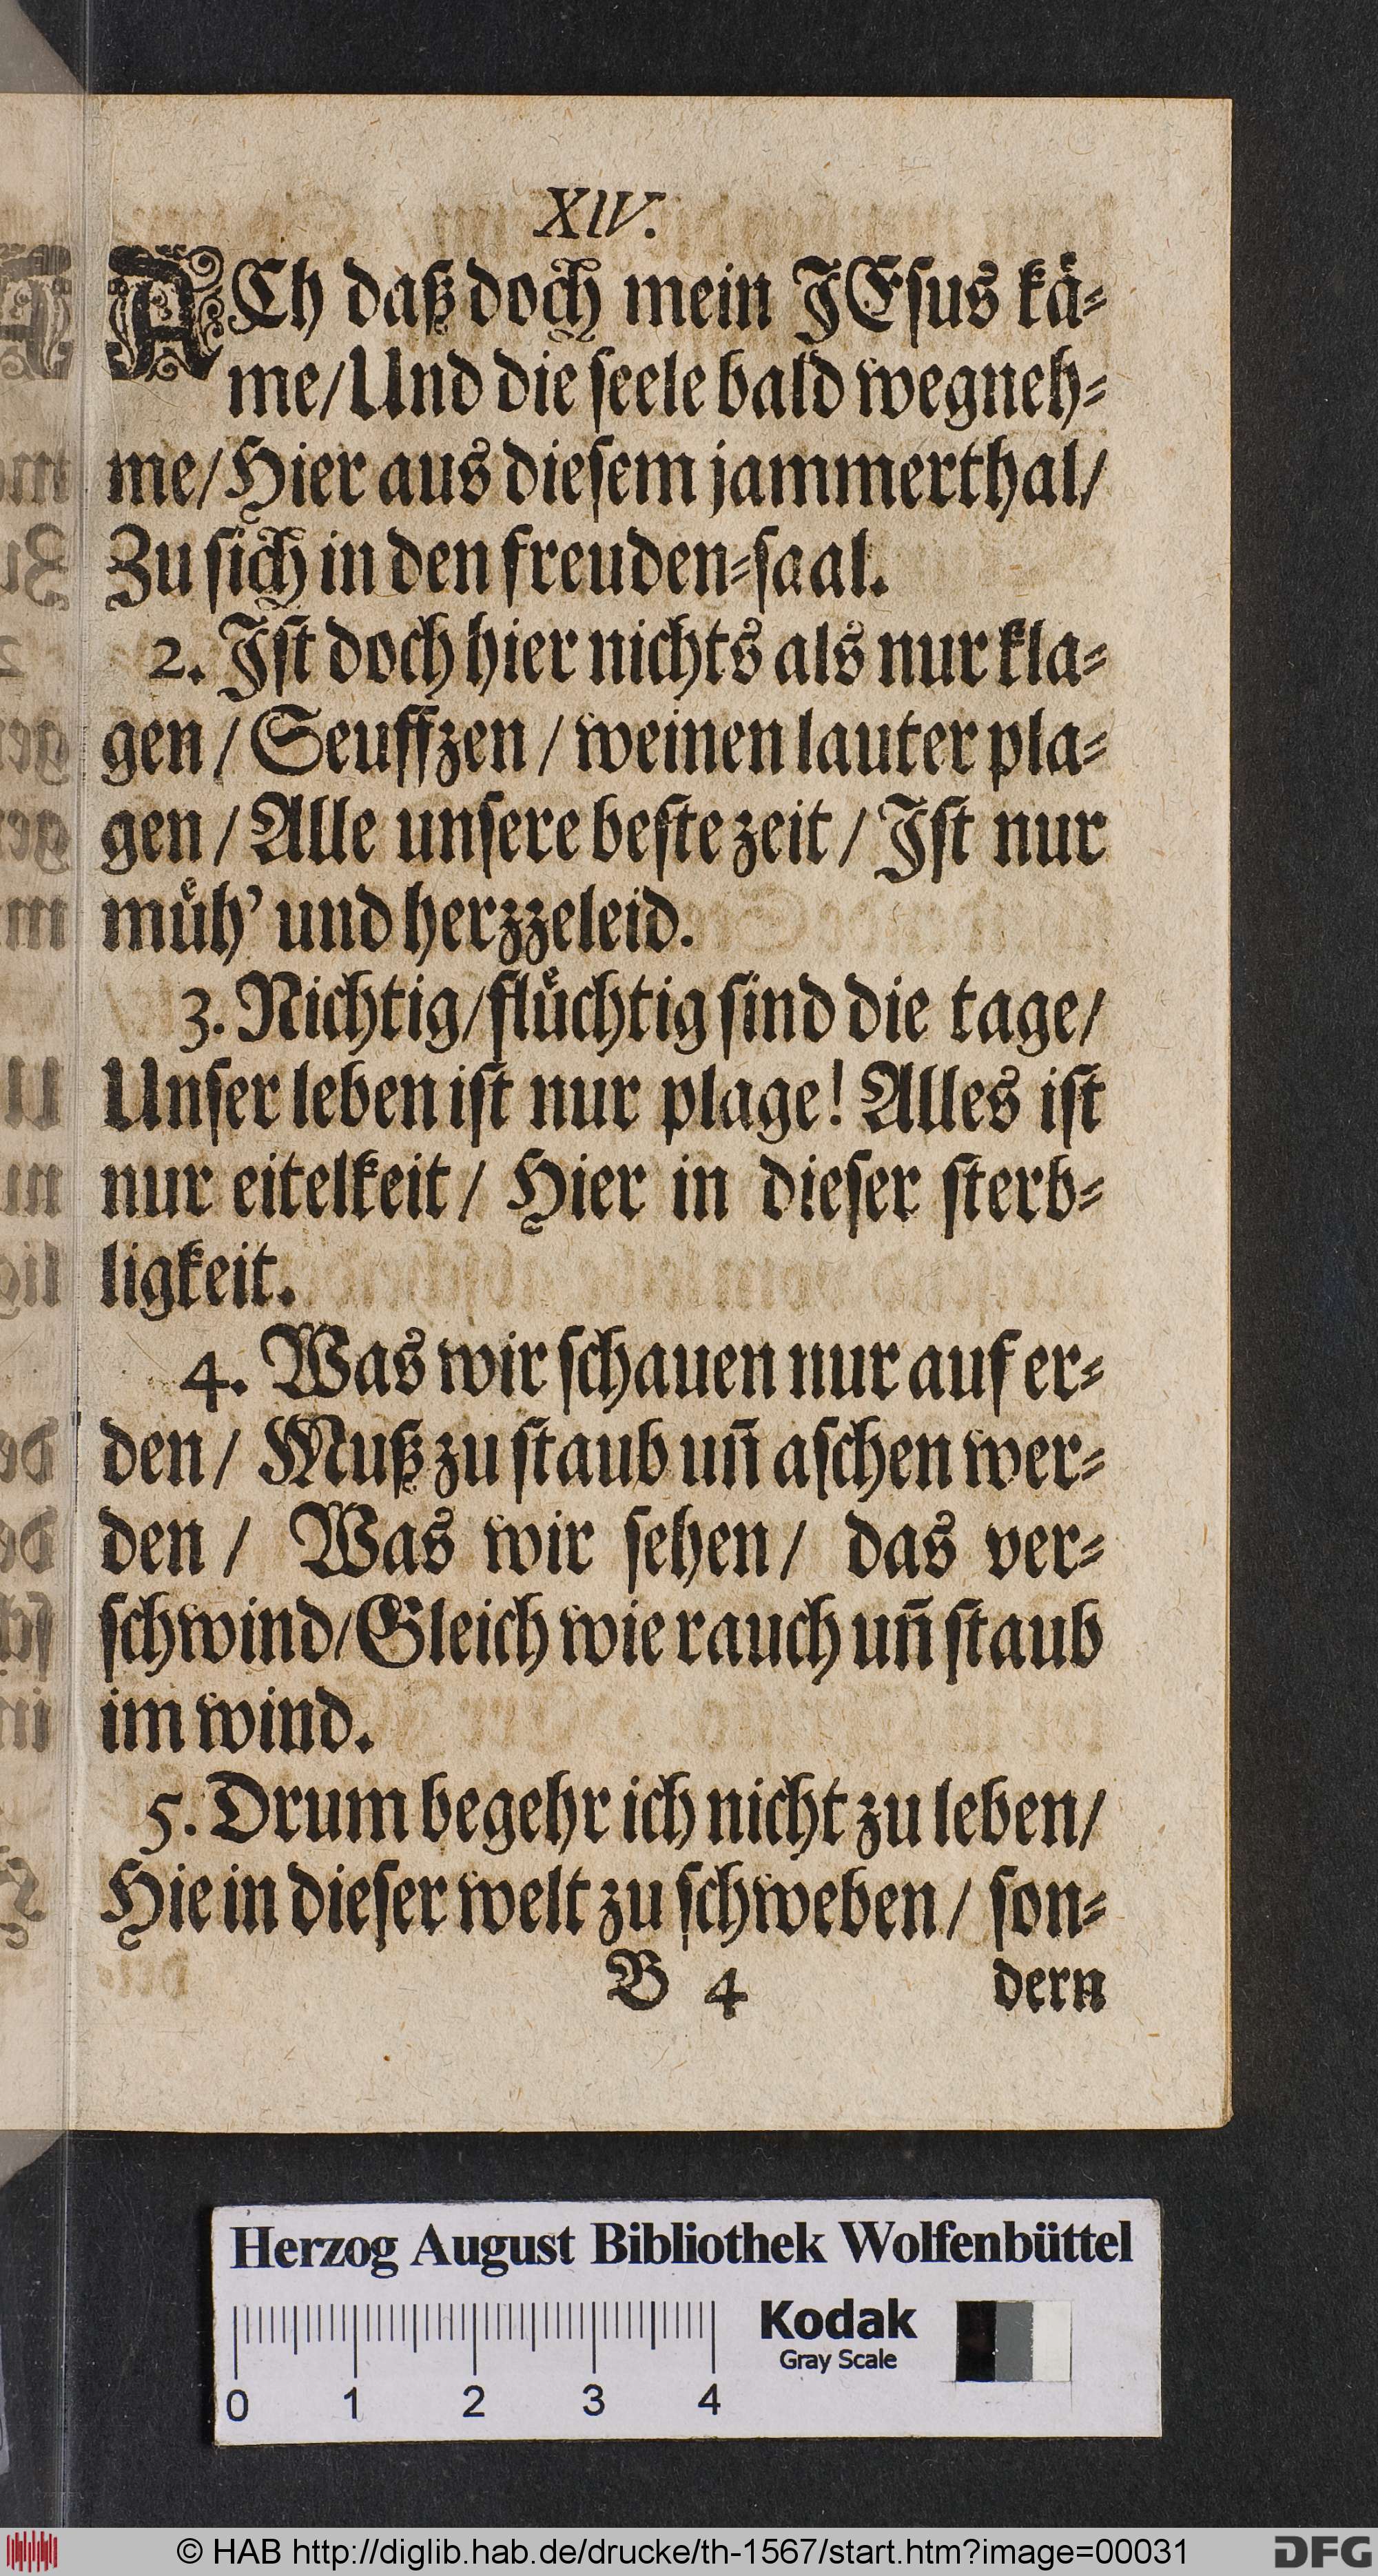 XIV.
ACh daß doch mein JEsus kä-
me/Und die seele bald wegneh-
me/Hier aus diesem jammerthal/
Zu sich in den freuden-saal.
2. Jst doch hier nichts als nur kla-
gen / Seuffzen / weinen lauter pla-
gen / Alle unsere beste zeit / Jst nur
müh' und herzzeleid.
3. Nichtig/flüchtig sind die tage/
Unser leben ist nur plage! Alles ist
nur eitelkeit / Hier in dieser sterb-
ligkeit.
4. Was wir schauen nur auf er-
den / Muß zu staub uñ aschen wer-
den / Was wir sehen / das ver-
schwind/Gleich wie rauch uñ staub
im wind.
5. Drum begehr ich nicht zu leben/
Hie in dieser welt zu schweben / son-
B 4 dern
Herzog August Bibliothek Wolfenbüttel
Kodak
Gray Scale
0 1 2 3 4
© HAB http://diglib.hab.de/drucke/th-1567/start.htm?image=00031
DFG